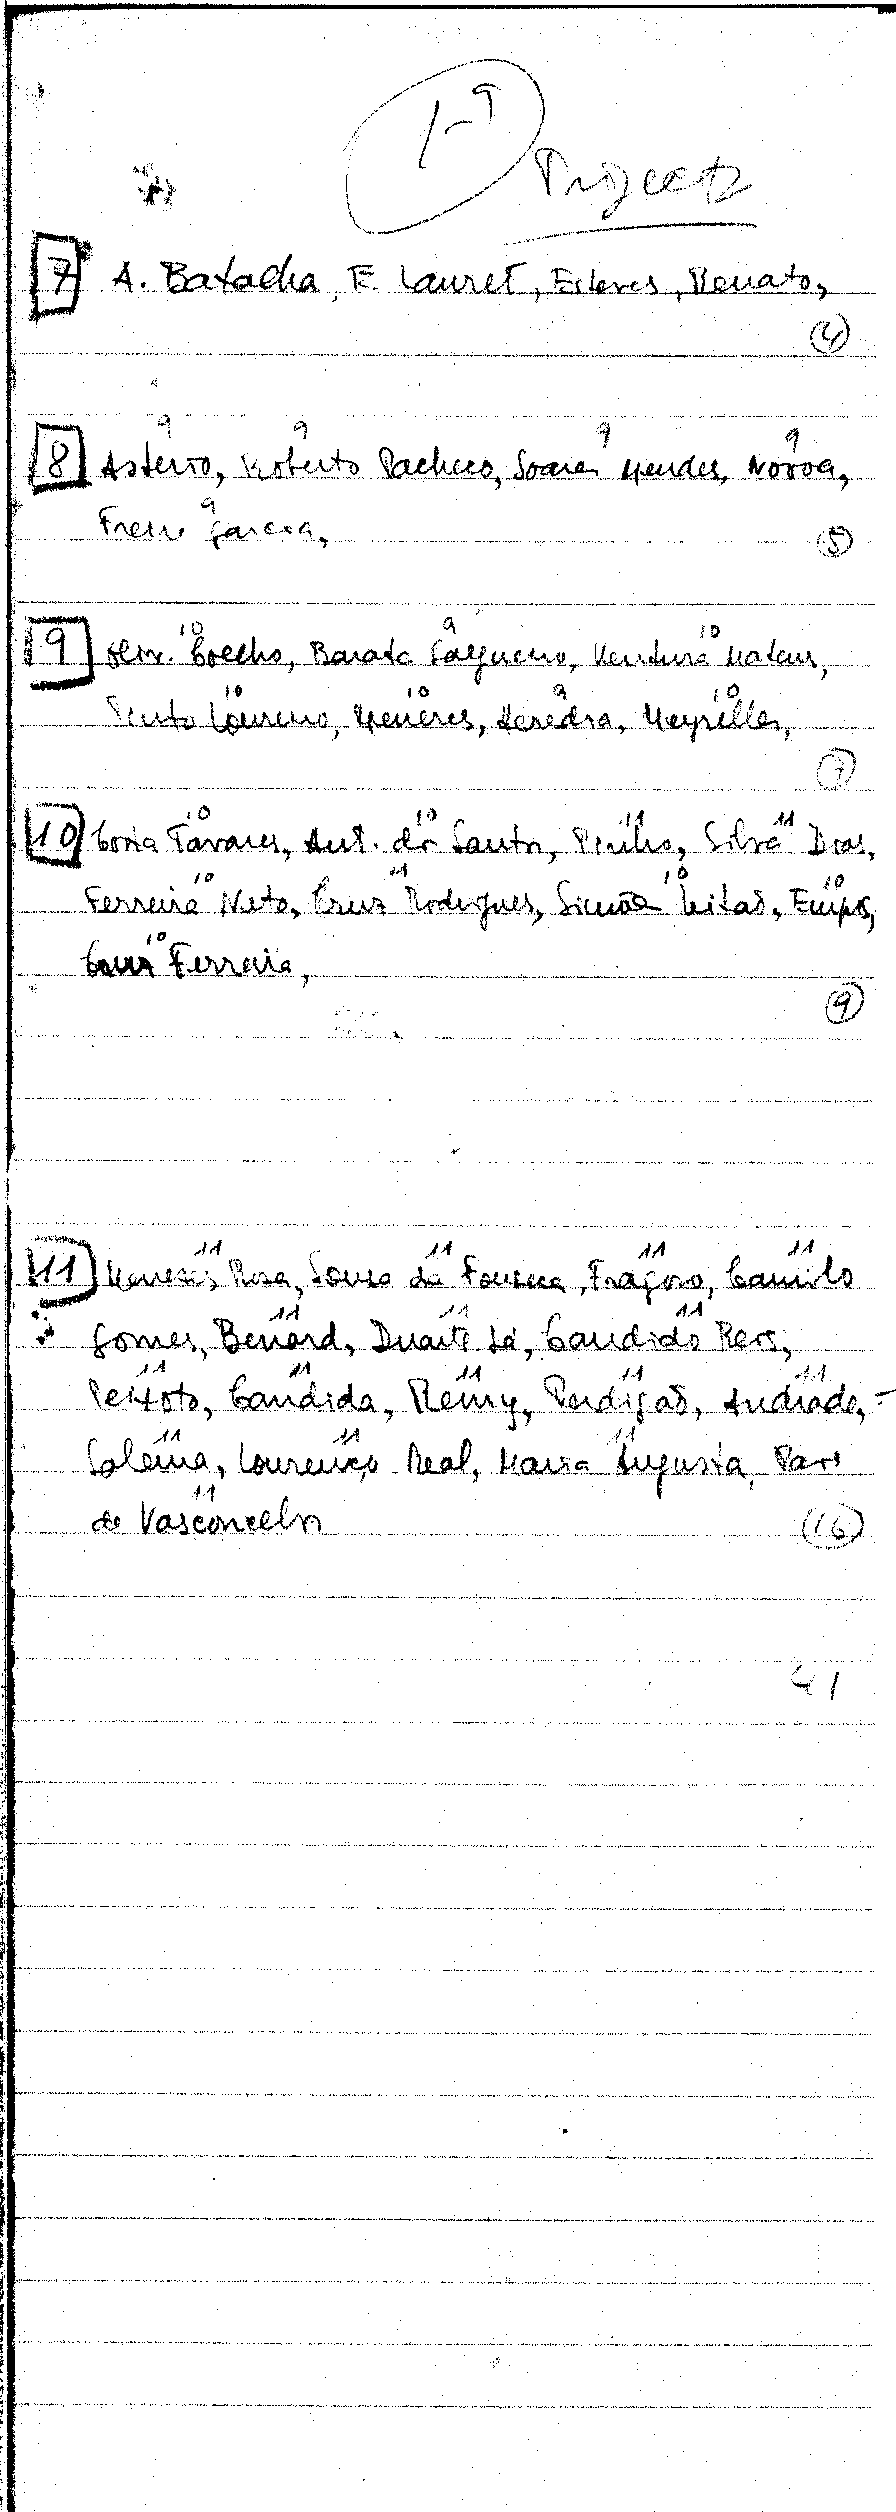 1-9
Projecto
7 A. Batacha, E. Lauret, Esteves, Renato,
4
9 9 9 9
8 Asterio, Roberto Pacheco, Soares Mendes, Noroa,
9
Freire Garcia,
5
10 9 10
9 Coelho, Barata Salgueiro, Ventura Mateus,
10 10 9 10
Pinto Loureiro, Meneres, Heredia, Meyrelles,
7
10 10 11 11
10 Tavares, Ant. dos Santos, Pinho, Silva Dias,
10 11 10 10
Ferreira Neto, Cruz Rodrigues, Simão Leitão,
10
Cruz Ferreira,
9
11 11 11 11
11 Rosa, Sousa da Fonseca, Fragoso, Camilo
11 11 11
Gomes, Benard, Duarte Sá, Candido Reis,
11 11 11 11 11
Peixoto, Candida, Remy, Perdigão, Andrade, -
11 11 11
Salema, Lourenço Real, Maria Augusta, Pais
11
de Vasconcelos
16
41